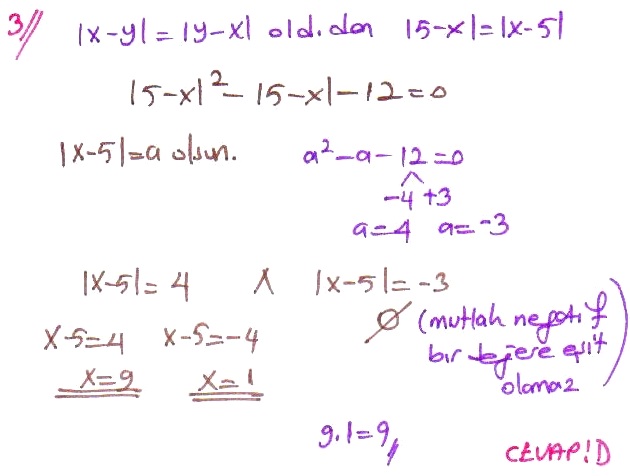 3// |x-y|=|y-x| old.dan |5-x|=|x-5|
|5-x|² - |5-x| - 12 = 0
|x-5|=a olsun. a²-a-12=0
-4 +3
a=4 a=-3
|x-5|=4 ∧ |x-5|=-3
x-5=4 x-5=-4 ∅ (mutlak negatif
bir değere eşit
x=9 x=1 olamaz)
9.1=9,
CEVAP:D